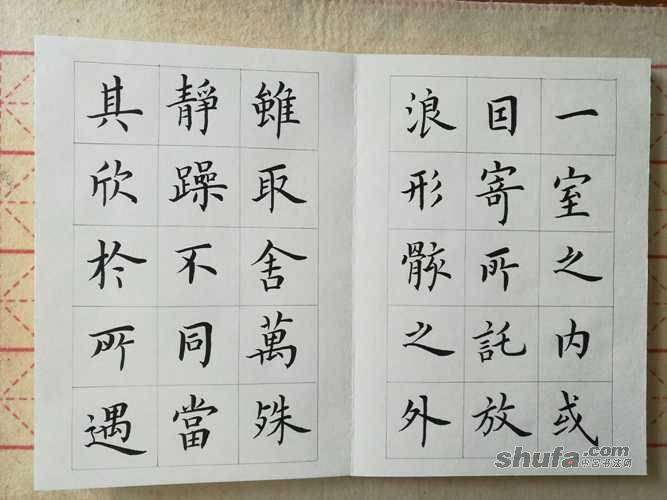 一室之内或
因寄所託放
浪形骸之外
雖取舍萬殊
靜躁不同當
其欣於所遇
shufa.com
中宮书法网